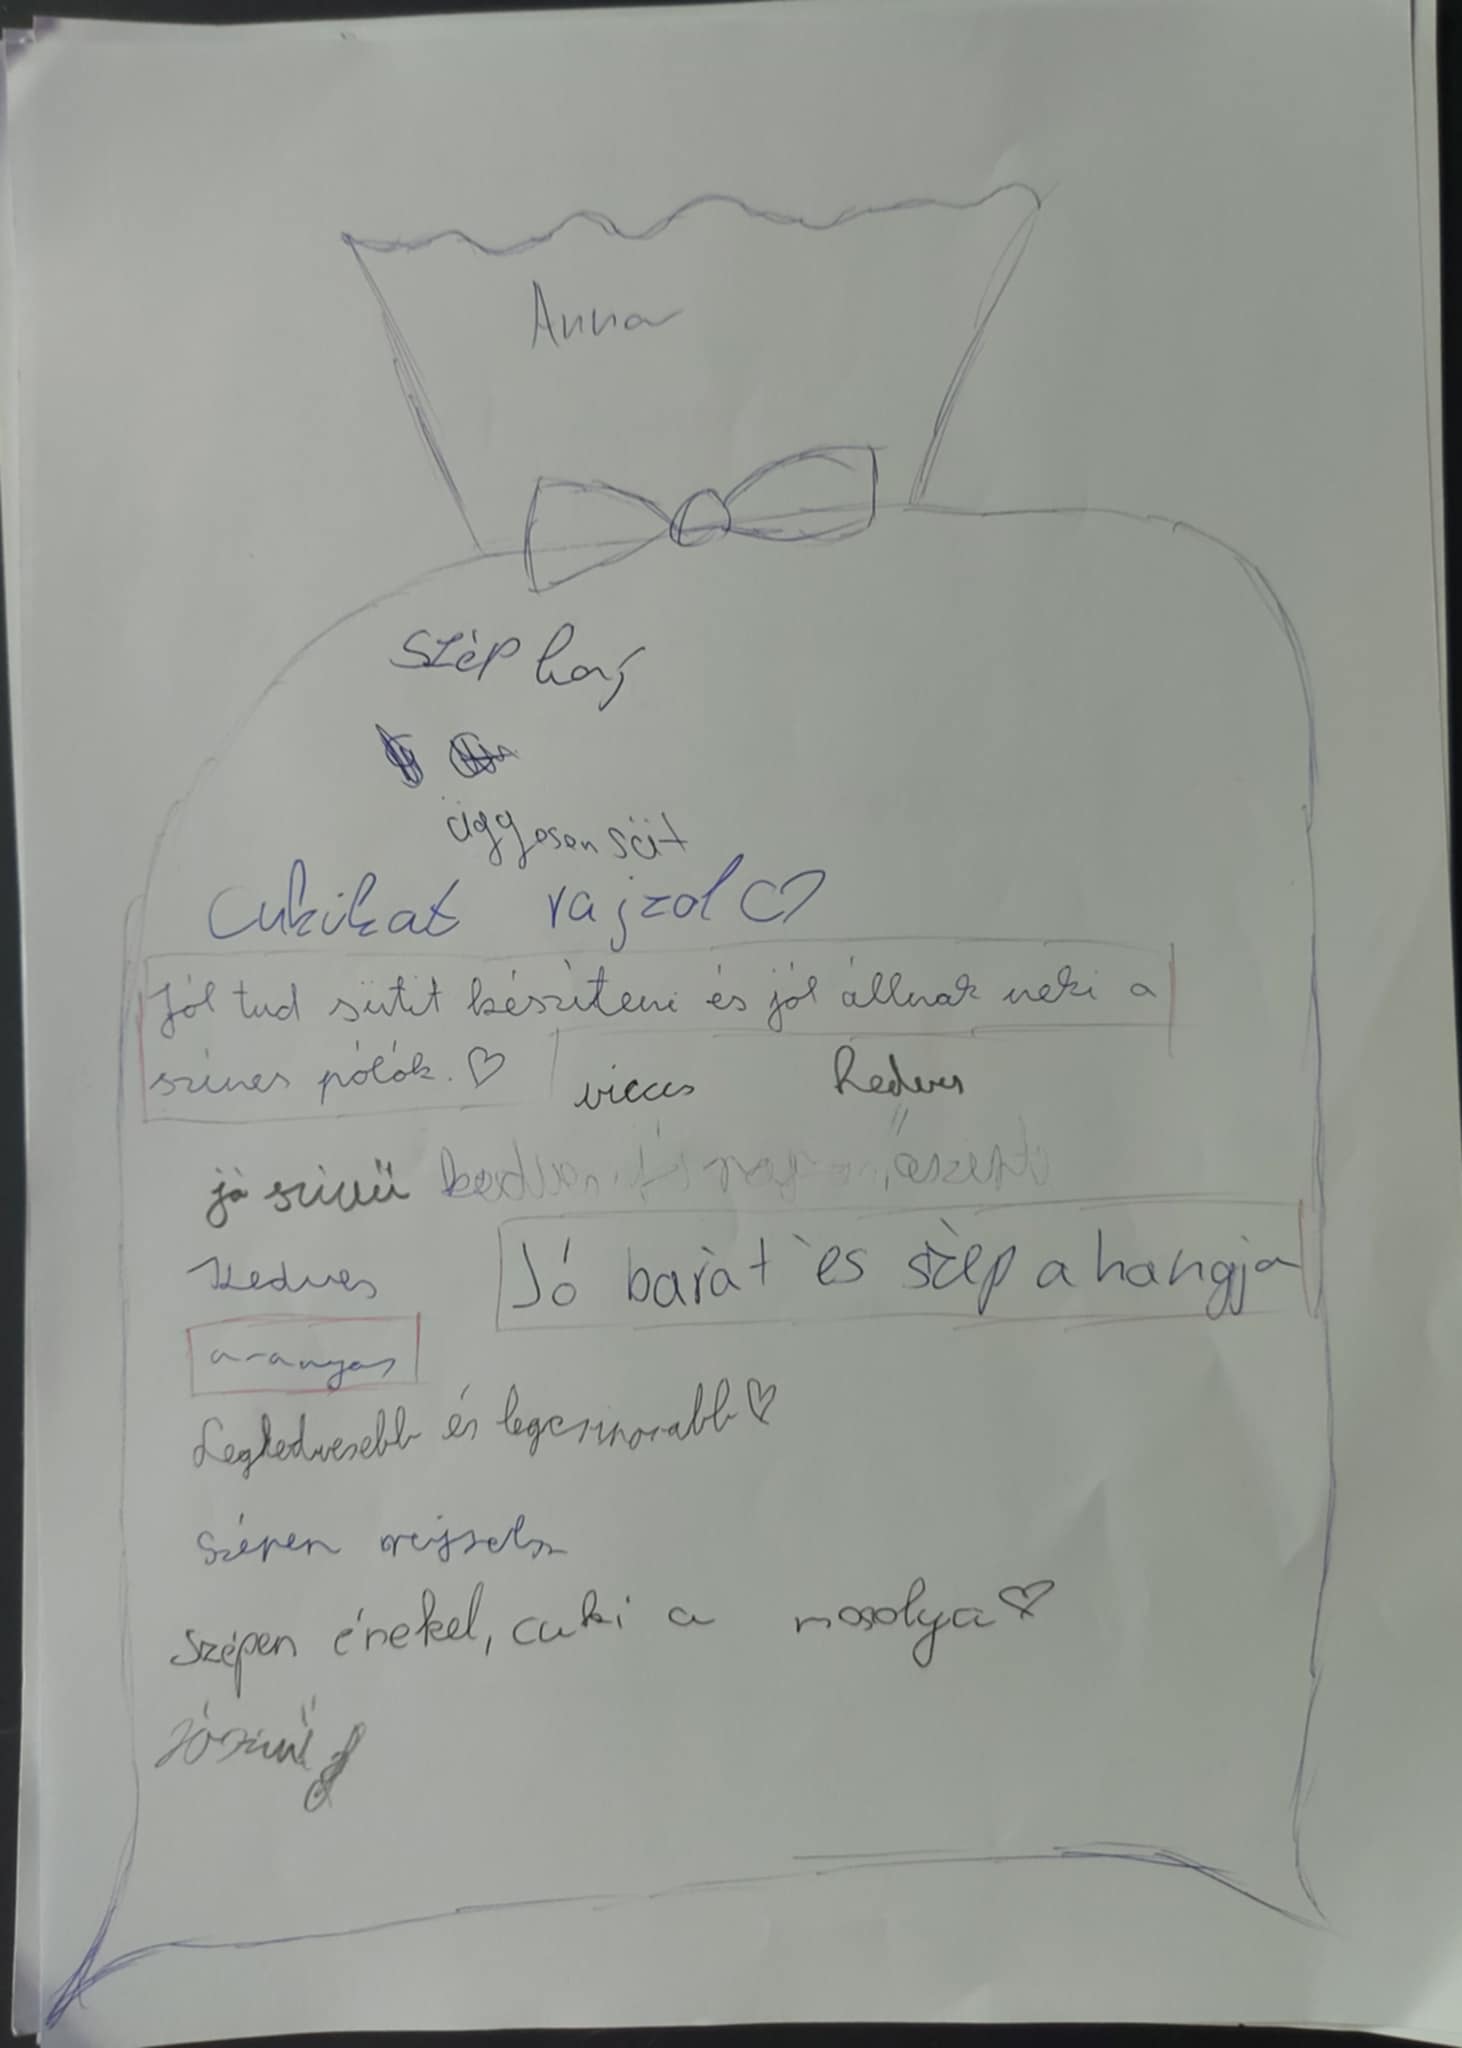 Anna
Szép haj
üggyosen süt
Cukikat rajzol ♡
Jól tud sütit készíteni és jól állnak neki a
színes pólók. ♡
vicces Kedves
jó szívű kedves
Kedves Jó barát és szép a hangja
aranyos
Legkedvesebb és legcsinosabb ♡
Szépen
Szépen énekel, cuki a mosolya ♡
Jószívű